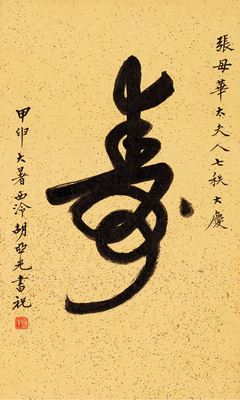 張母華太夫人七秩大慶
壽
甲卯大暑西泠胡亞光書祝